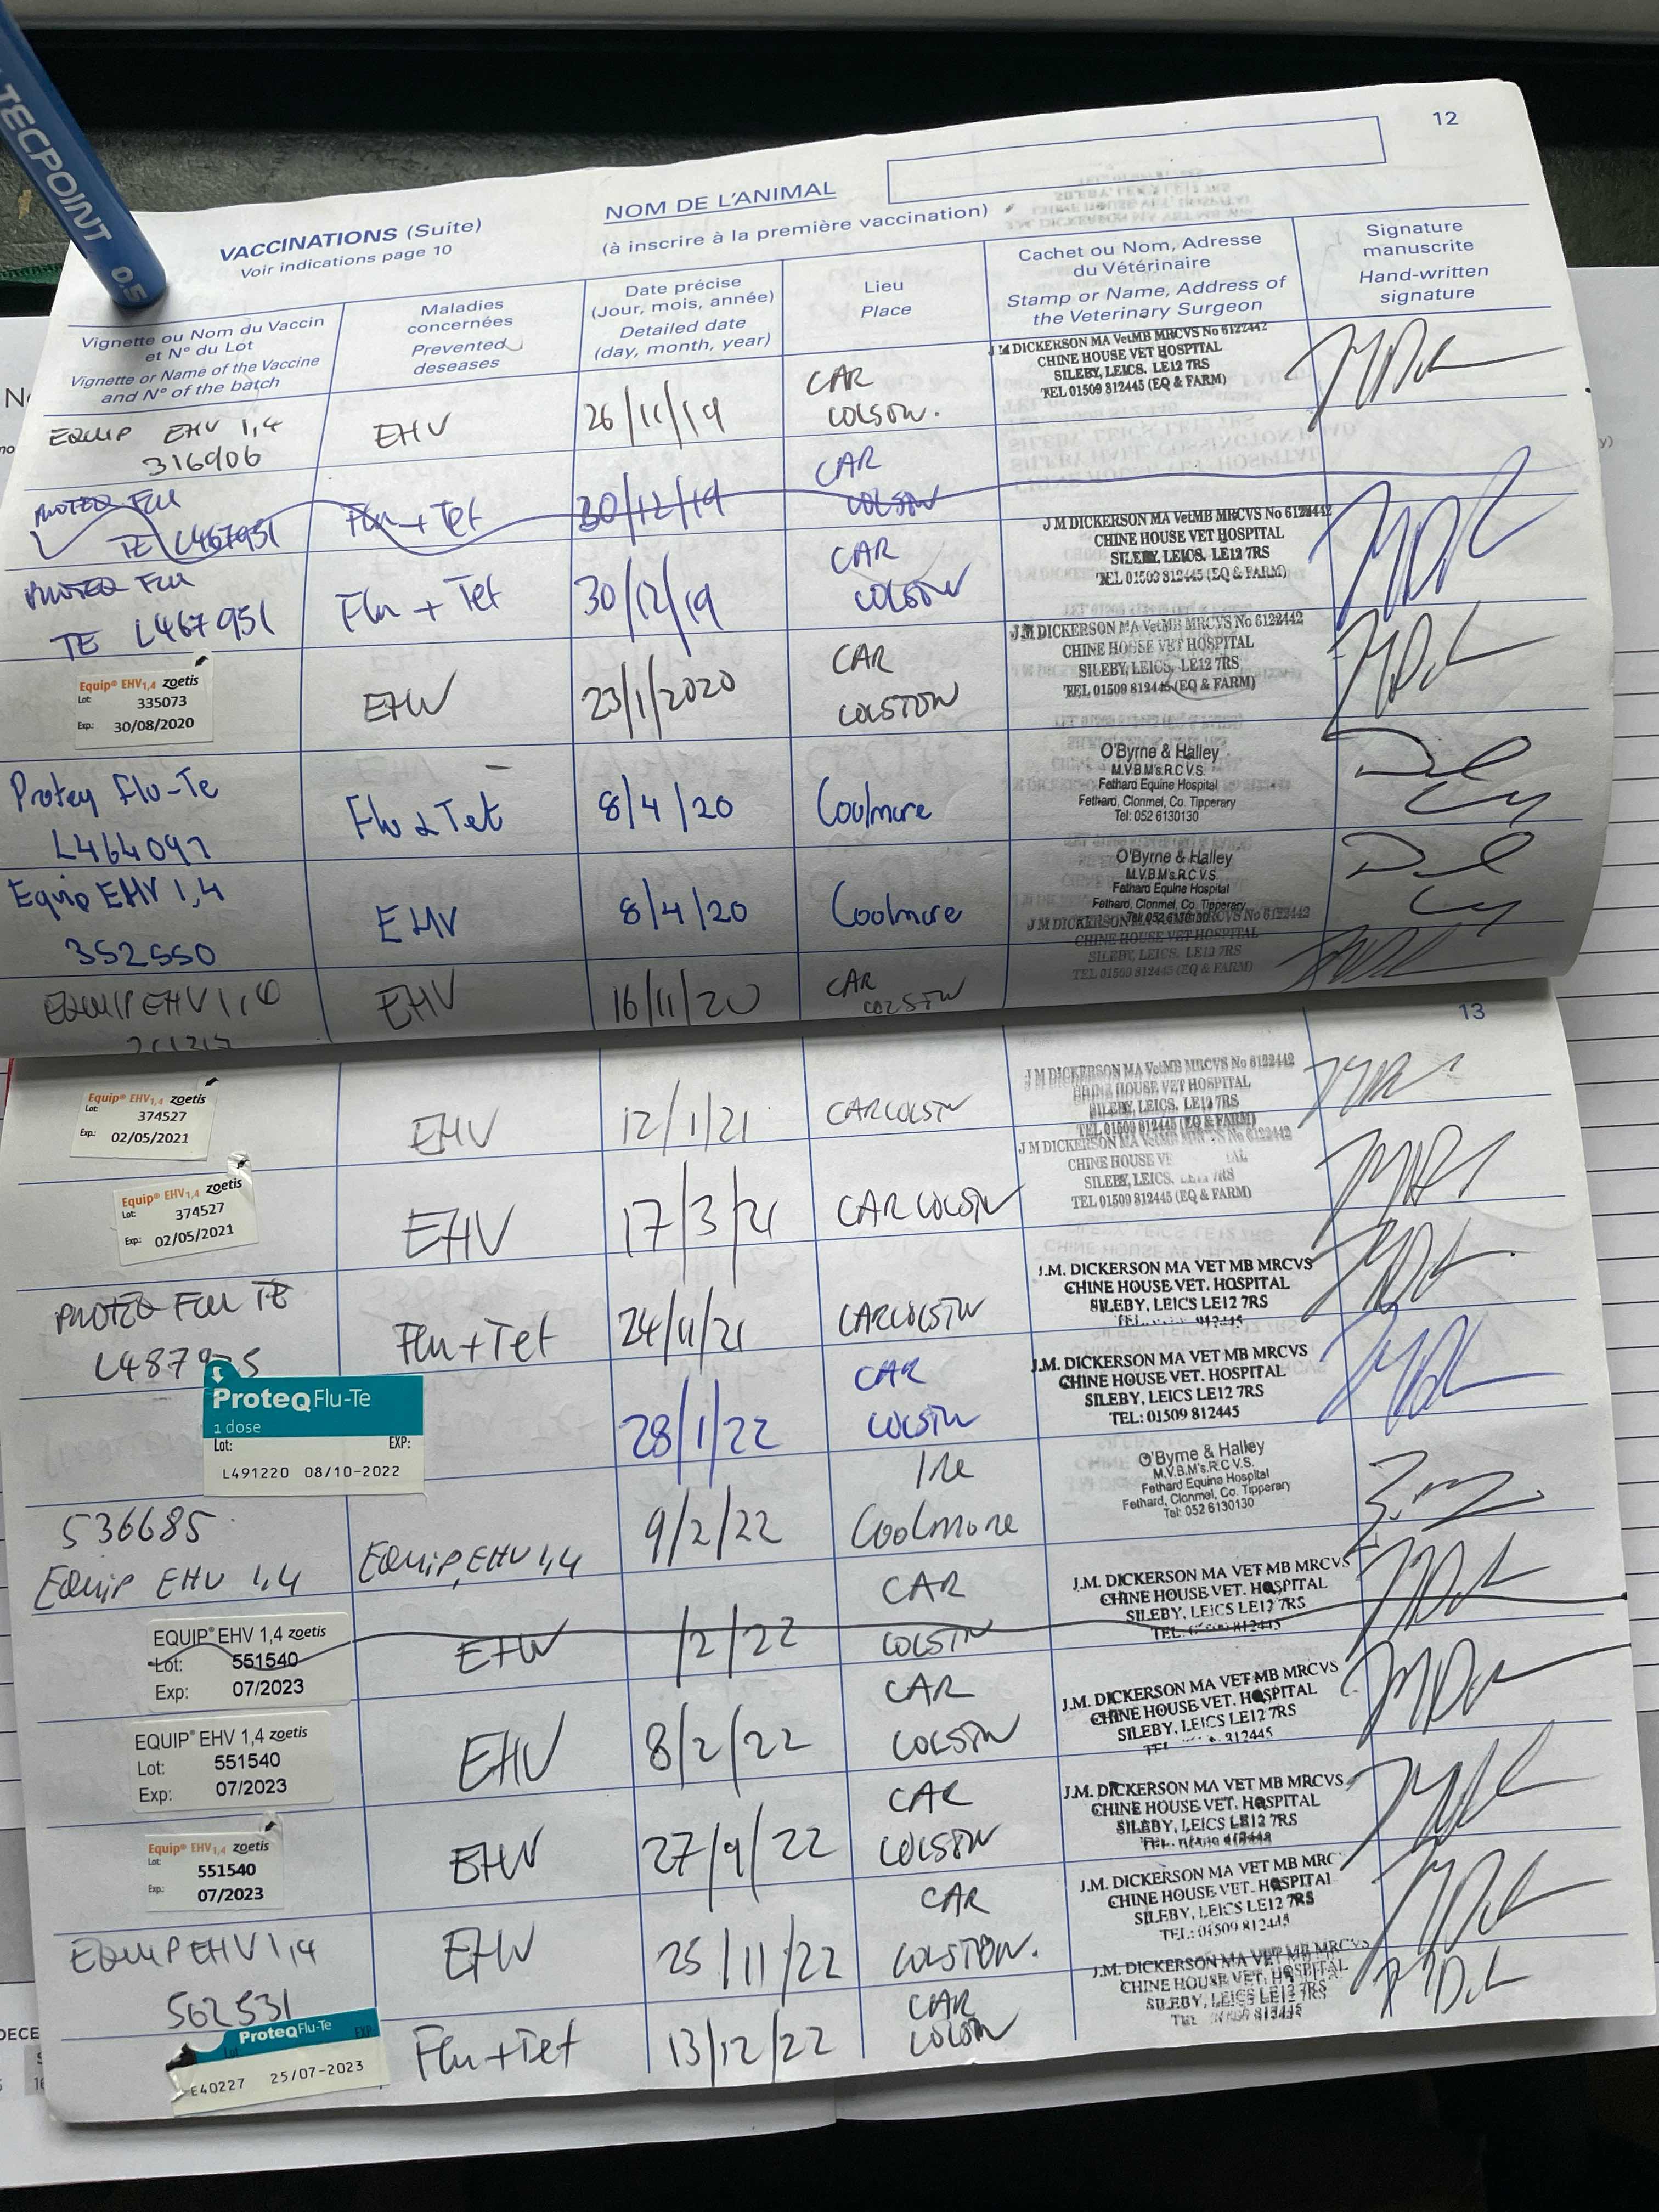 TECPOINT 0.5
12
NOM DE L'ANIMAL
VACCINATIONS (Suite)
(à inscrire à la première vaccination)
Voir indications page 10
Vignette ou Nom du Vaccin
et N° du Lot
Vignette or Name of the Vaccine
and N° of the batch
Maladies
concernées
Prevented
deseases
Date précise
(Jour, mois, année)
Detailed date
(day, month, year)
Lieu
Place
Cachet ou Nom, Adresse
du Vétérinaire
Stamp or Name, Address of
the Veterinary Surgeon
Signature
manuscrite
Hand-written
signature
EQUIP EHV 1,4
316906
EHV
26/11/19
CAR
COLSTON.
J M DICKERSON MA VetMB MRCVS No 6122442
CHINE HOUSE VET HOSPITAL
SILEBY, LEICS. LE12 7RS
TEL 01509 812445 (EQ & FARM)
PROTEQ FLU
TE L467951
Flu + Tet
30/12/19
CAR
COLSTON
PROTEQ FLU
TE L467951
Flu + Tet
30/12/19
CAR
COLSTON
J M DICKERSON MA VetMB MRCVS No 6122442
CHINE HOUSE VET HOSPITAL
SILEBY, LEICS. LE12 7RS
TEL 01509 812445 (EQ & FARM)
Equip® EHV1,4 zoetis
Lot: 335073
Exp.: 30/08/2020
EHV
23/1/2020
CAR
COLSTON
J M DICKERSON MA VetMB MRCVS No 6122442
CHINE HOUSE VET HOSPITAL
SILEBY, LEICS. LE12 7RS
TEL 01509 812445 (EQ & FARM)
Proteq Flu-Te
L464097
Flu & Tet
8/4/20
Coolmore
O'Byrne & Halley
M.V.B.M's.R.C.V.S.
Fethard Equine Hospital
Fethard, Clonmel, Co. Tipperary
Tel: 052 6130130
Equip EHV 1,4
352550
EHV
8/4/20
Coolmore
O'Byrne & Halley
M.V.B.M's.R.C.V.S.
Fethard Equine Hospital
Fethard, Clonmel, Co. Tipperary
Tel: 052 6130130
EQUIP EHV 1,4
EHV
16/11/20
CAR
COLSTON
J M DICKERSON MA VetMB MRCVS No 6122442
CHINE HOUSE VET HOSPITAL
SILEBY, LEICS. LE12 7RS
TEL 01509 812445 (EQ & FARM)
13
Equip® EHV1,4 zoetis
Lot: 374527
Exp.: 02/05/2021
EHV
12/1/21
CARCOLSTON
J M DICKERSON MA VetMB MRCVS No 6122442
CHINE HOUSE VET HOSPITAL
SILEBY, LEICS. LE12 7RS
TEL 01509 812445 (EQ & FARM)
Equip® EHV1,4 zoetis
Lot: 374527
Exp.: 02/05/2021
EHV
17/3/21
CARCOLSTON
J M DICKERSON MA VetMB MRCVS No 6122442
CHINE HOUSE
SILEBY, LEICS.
TEL 01509 812445 (EQ & FARM)
PROTEQ FLU TE
Flu + Tet
CARCOLSTON
J.M. DICKERSON MA VET MB MRCVS
CHINE HOUSE VET. HOSPITAL
SILEBY, LEICS LE12 7RS
ProteqFlu-Te
1 dose
Lot: EXP:
L491220 08/10-2022
28/1/22
CAR
COLSTON
J.M. DICKERSON MA VET MB MRCVS
CHINE HOUSE VET. HOSPITAL
SILEBY, LEICS LE12 7RS
TEL: 01509 812445
536685
Equip EHV 1,4
Equip, EHV 1,4
9/2/22
Ire
Coolmore
O'Byrne & Halley
M.V.B.M's.R.C.V.S.
Fethard Equine Hospital
Fethard, Clonmel, Co. Tipperary
Tel: 052 6130130
EQUIP® EHV 1,4 zoetis
Lot: 551540
Exp: 07/2023
EHV
/2/22
CAR
COLSTON
J.M. DICKERSON MA VET MB MRCVS
CHINE HOUSE VET. HOSPITAL
SILEBY, LEICS LE12 7RS
EQUIP® EHV 1,4 zoetis
Lot: 551540
Exp: 07/2023
EHV
8/2/22
CAR
COLSTON
J.M. DICKERSON MA VET MB MRCVS
CHINE HOUSE VET. HOSPITAL
SILEBY, LEICS LE12 7RS
Equip® EHV1,4 zoetis
Lot: 551540
Exp.: 07/2023
EHV
27/9/22
CAR
COLSTON
J.M. DICKERSON MA VET MB MRCVS
CHINE HOUSE VET. HOSPITAL
SILEBY, LEICS LE12 7RS
EQUIP EHV 1,4
562531
EHV
25/11/22
CAR
COLSTON.
J.M. DICKERSON MA VET MB MRC
CHINE HOUSE VET. HOSPITAL
SILEBY, LEICS LE12 7RS
TEL: 01509 812445
ProteqFlu-Te
Lot: EXP
E40227 25/07-2023
Flu + Tet
13/12/22
CAR
COLSTON
J.M. DICKERSON MA VET MB MRCVS
CHINE HOUSE VET. HOSPITAL
SILEBY, LEICS LE12 7RS
DECE